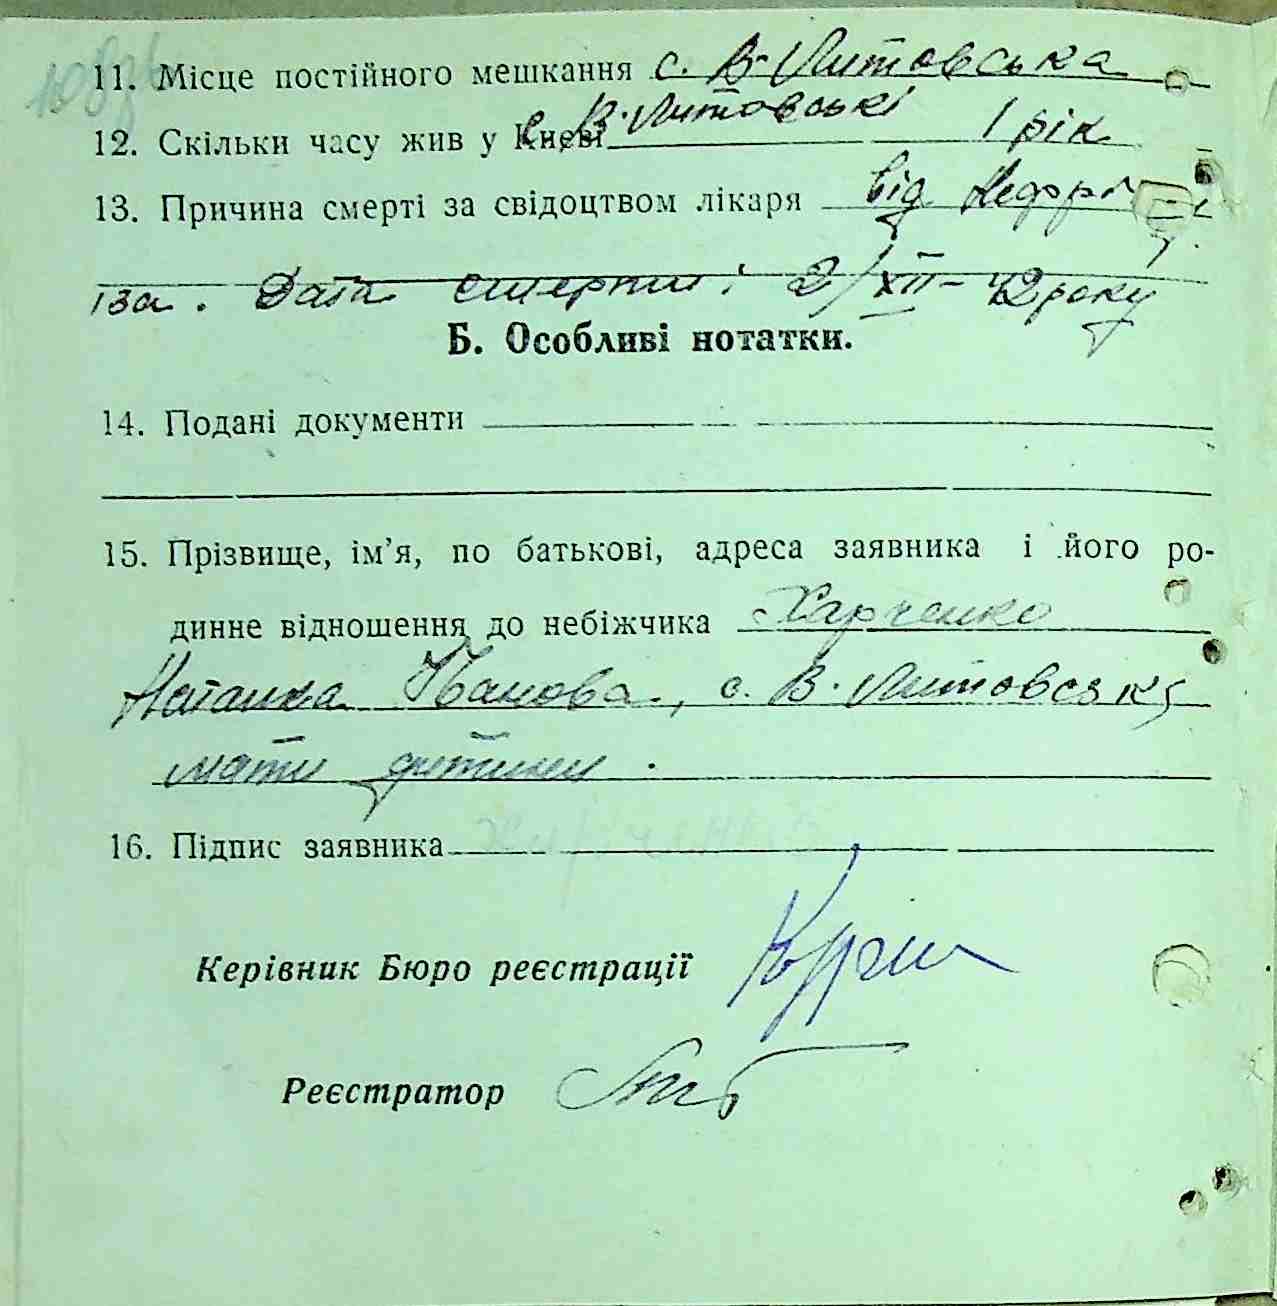 11. Місце постійного мешкання с. В-Литовська
12. Скільки часу жив у Києві с. В. Литовські 1 рік
13. Причина смерті за свідоцтвом лікаря від Нефрі
іза. Дата смерти: 2/XII-42 року
Б. Особливі нотатки.
14. Подані документи
15. Прізвище, ім’я, по батькові, адреса заявника і його ро-
динне відношення до небіжчика Харченко
Наталка Іванова, с. В. Литовськ
мати дитини.
16. Підпис заявника Харченко
Керівник Бюро реєстрації
Реєстратор